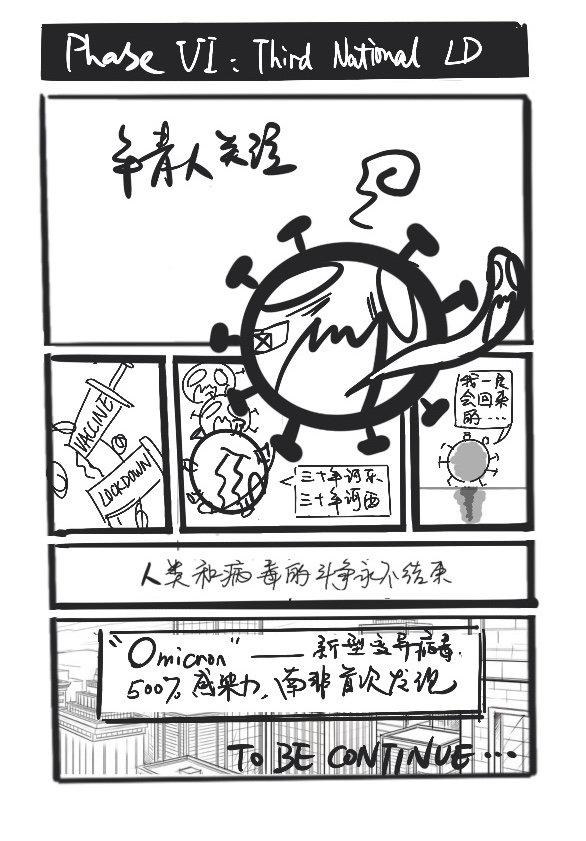 Phase VI: Third National LD
年青人关注
VACCINE
LOCKDOWN
三十年河东
三十年河西
我一定
会回来
的...
人类和病毒的斗争永不结束
"Omicron" —— 新型变异病毒.
500% 感染力, 南非首次发现
TO BE CONTINUE...